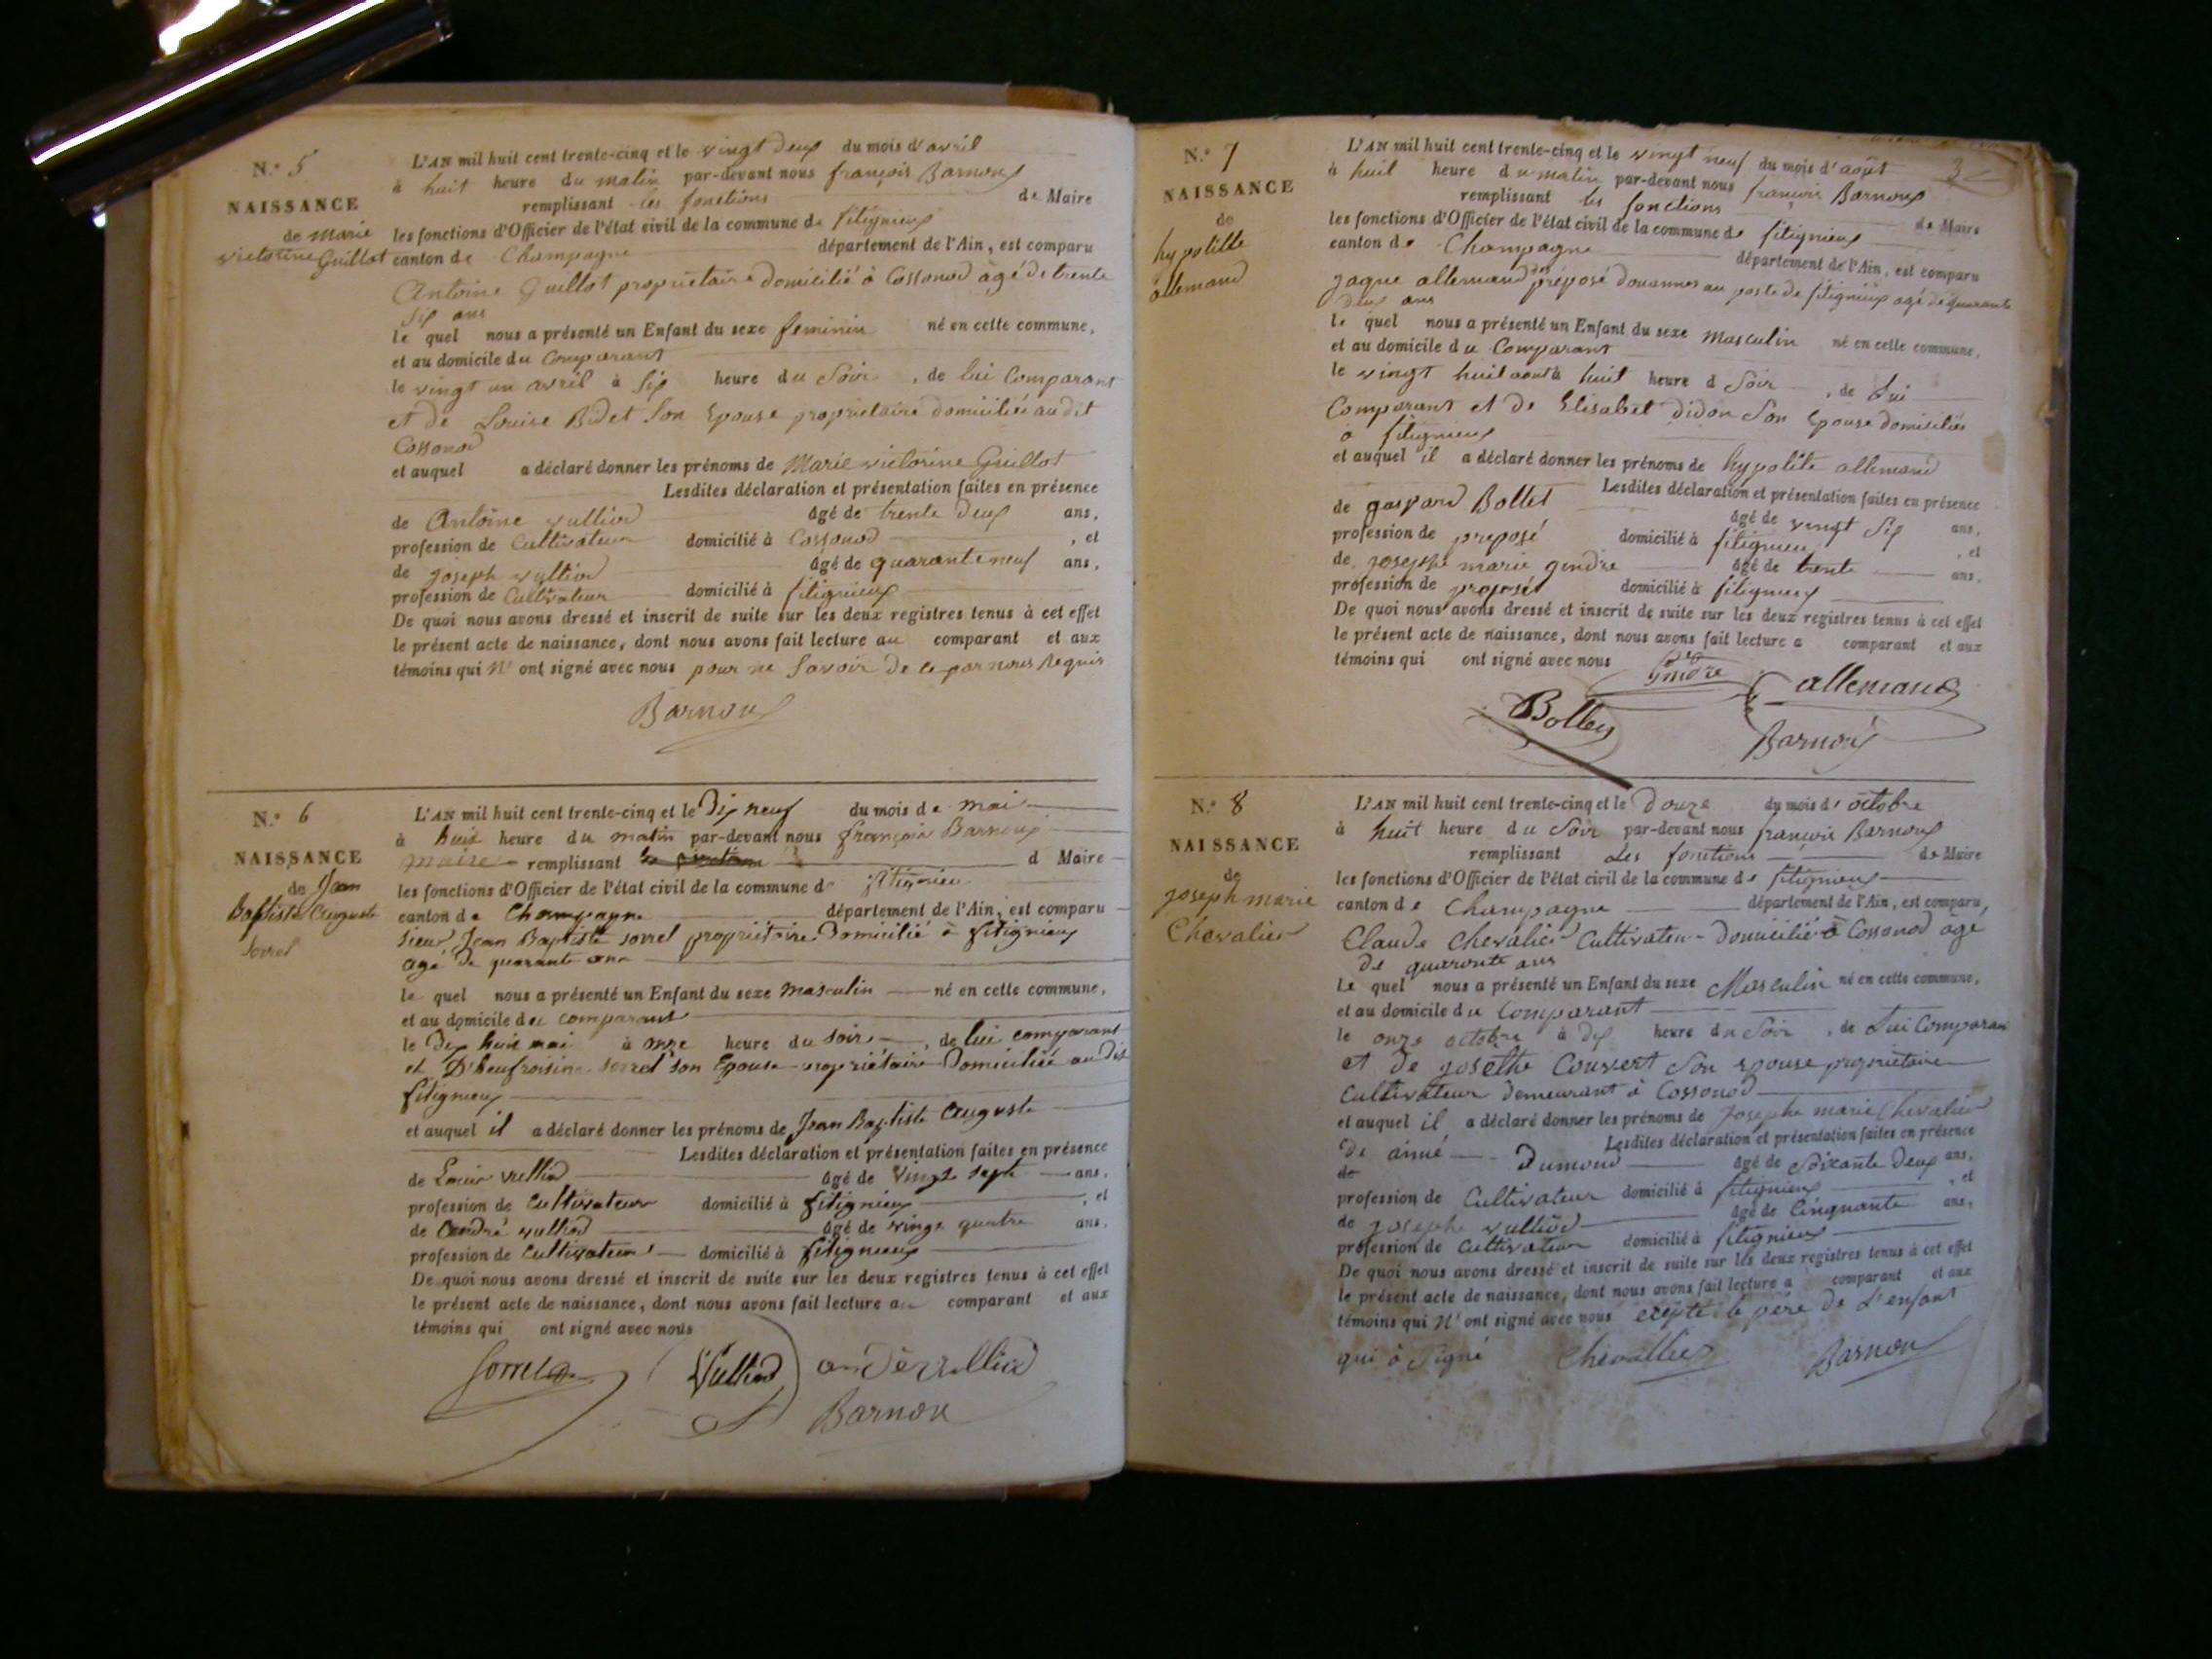 N.º 5
NAISSANCE
de Marie
victorine Guillot
L'AN mil huit cent trente-cinq et le vingt deux du mois d'avril
à huit heure du matin par-devant nous françois Barnoux
remplissant les fonctions de Maire
les fonctions d'Officier de l'état civil de la commune de fitignieux
canton de Champagne département de l'Ain, est comparu
Antoine Guillot propriétaire domicilié à Cossonod âgé de trente
six ans
le quel nous a présenté un Enfant du sexe feminin né en cette commune,
et au domicile du Comparant
le vingt un avril à six heure du Soir, de lui Comparant
et de Louise Bidet Son Epouse propriétaire domiciliée audit
Cossonod
et auquel a déclaré donner les prénoms de Marie victorine Guillot
Lesdites déclaration et présentation faites en présence
de Antoine vulliod âgé de trente deux ans,
profession de Cultivateur domicilié à Cossonod, et
de joseph vulliod âgé de quarante neuf ans,
profession de Cultivateur domicilié à fitignieux
De quoi nous avons dressé et inscrit de suite sur les deux registres tenus à cet effet
le présent acte de naissance, dont nous avons fait lecture au comparant et aux
témoins qui n'ont signé avec nous pour ne Savoir de ce par nous Requis
Barnoux
N.º 6
NAISSANCE
de Jean
Baptiste Auguste
Sorrel
L'AN mil huit cent trente-cinq et le Dix neuf du mois de mai
à huit heure du matin par-devant nous françois Barnoux
maire remplissant d Maire
les fonctions d'Officier de l'état civil de la commune de fitignieu
canton de Champagne département de l'Ain, est comparu
Sieur Jean Baptiste sorrel propriétaire Domicilié à fitignieux
agé de quarante ans
le quel nous a présenté un Enfant du sexe masculin né en cette commune,
et au domicile du comparant
le Dix huit mai à onze heure du soir, de lui comparant
et D'heufroisine sorrel son Epouse propriétaire Domiciliée au dit
fitignieux
et auquel il a déclaré donner les prénoms de Jean Baptiste Auguste
Lesdites déclaration et présentation faites en présence
de Louis vulliod âgé de vingt septe ans,
profession de Cultivateur domicilié à fitignieux, et
de André vulliod âgé de vingt quatre ans,
profession de Cultivateur domicilié à fitignieux
De quoi nous avons dressé et inscrit de suite sur les deux registres tenus à cet effet
le présent acte de naissance, dont nous avons fait lecture au comparant et aux
témoins qui ont signé avec nous
Sorrel Vulliod andré vulliod
Barnoux
3
N.º 7
NAISSANCE
de
hypolitte
allemand
L'AN mil huit cent trente-cinq et le vingt neuf du mois d'août
à huit heure du matin par-devant nous francois Barnoux
remplissant les fonctions de Maire
les fonctions d'Officier de l'état civil de la commune de fitignieux
canton de Champagne département de l'Ain, est comparu
jaque allemand préposé des douannes au poste de fitignieux agé de quarante
deux ans
le quel nous a présenté un Enfant du sexe Masculin né en cette commune,
et au domicile du Comparant
le vingt huit aout à huit heure d Soir, de Lui
Comparant et de Elisabet didon Son Epouse domiciliés
à fitignieux
et auquel il a déclaré donner les prénoms de hypolite allemand
Lesdites déclaration et présentation faites en présence
de gaspard Bollet âgé de vingt six ans,
profession de preposé domicilié à fitignieu, et
de josephe marie gindre âgé de trente ans,
profession de préposé domicilié à fitignieux
De quoi nous avons dressé et inscrit de suite sur les deux registres tenus à cet effet
le présent acte de naissance, dont nous avons fait lecture a comparant et aux
témoins qui ont signé avec nous Gindre
Bolley allemand
Barnoux
N.º 8
NAISSANCE
de
joseph marie
Chevalier
L'AN mil huit cent trente-cinq et le Douze du mois d'octobre
à huit heure du Soir par-devant nous francois Barnoux
remplissant des fonctions de Maire
les fonctions d'Officier de l'état civil de la commune de fitignieux
canton de Champagne département de l'Ain, est comparu,
Claude Chevalier Cultivateur Domicilié à Cossonod âgé
de quarante ans
Le quel nous a présenté un Enfant du sexe Masculin né en cette commune,
et au domicile du Comparant
le onze octobre à dix heure du Soir, de Lui Comparan
et de josethe Couvert Son epouse propriétaire
Cultivateur demeurant à Cossonod
et auquel il a déclaré donner les prénoms de Josephe marie Chevalier
Lesdites déclaration et présentation faites en présence
de aimé Dumond âgé de Soixante Deux ans,
profession de Cultivateur domicilié à fitignieux, et
de josephe vulliod âgé de Cinquante ans,
profession de Cultivateur domicilié à fitignieux
De quoi nous avons dressé et inscrit de suite sur les deux registres tenus à cet effet
le présent acte de naissance, dont nous avons fait lecture a comparant et aux
témoins qui N'ont signé avec nous exepté le père de L'enfant
qui à Signé Chevallier Barnoux